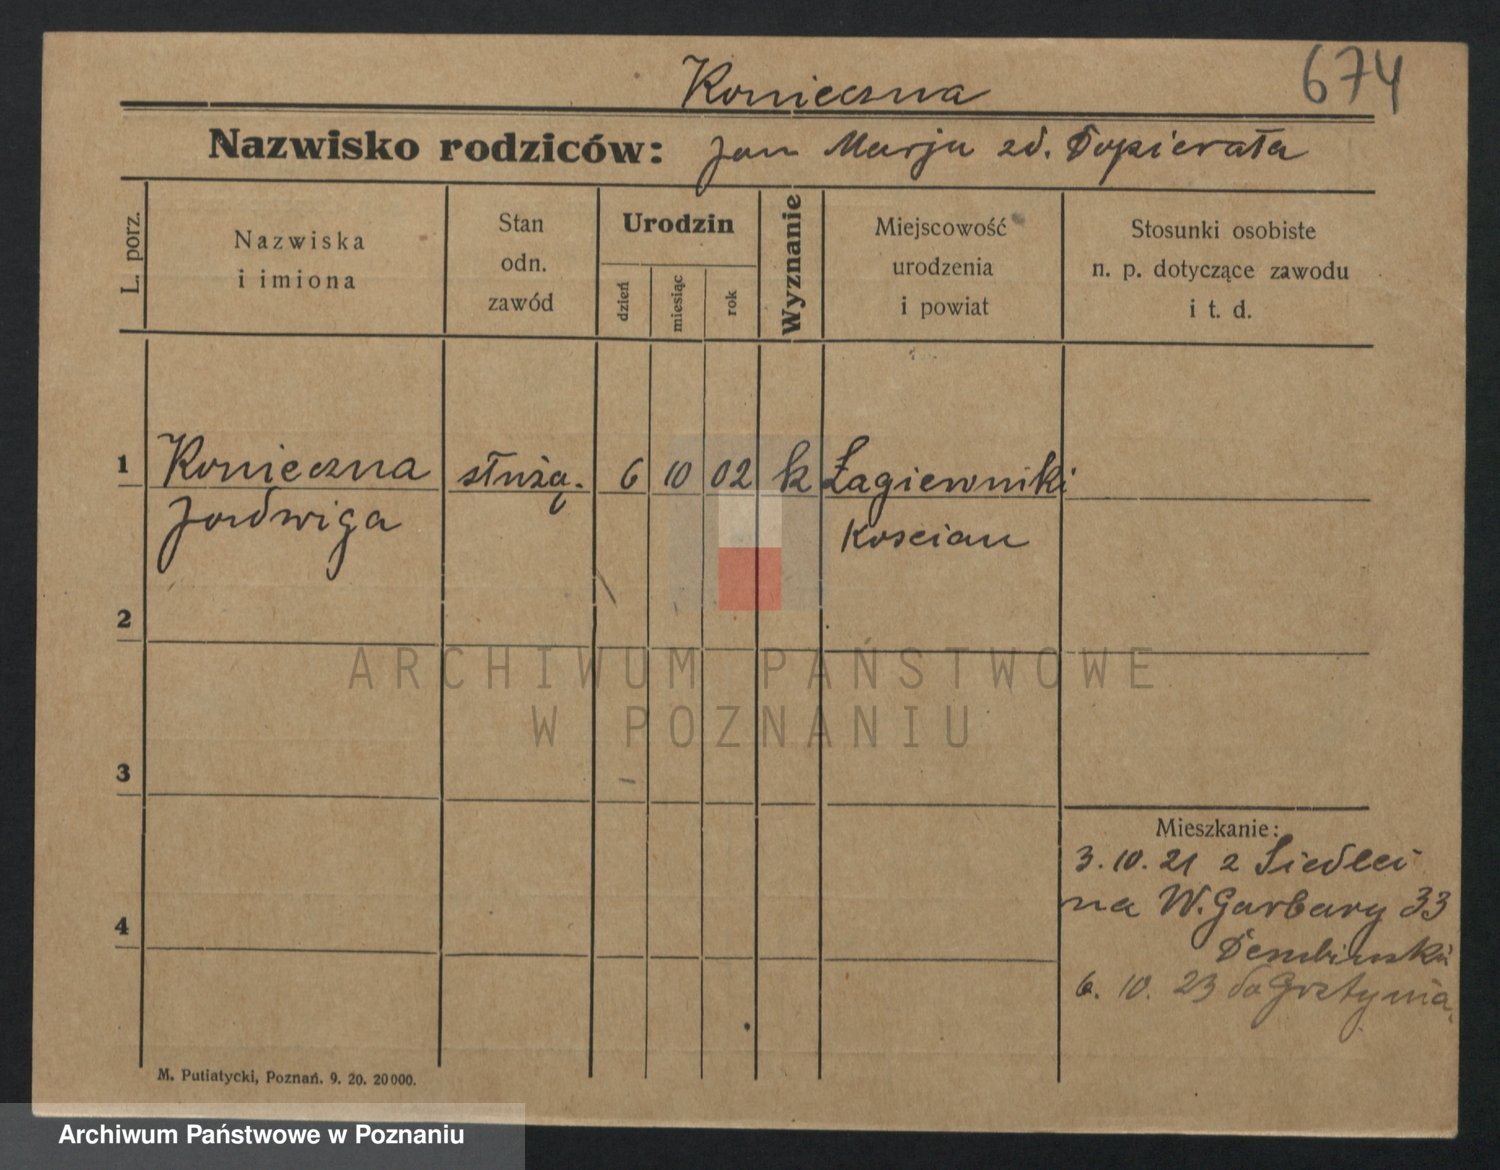 Konieczna
674
Nazwisko rodziców: Jan Marja zd. Dopierała
L. porz.
Nazwiska
i imiona
Stan
odn.
zawód
Urodzin
dzień
miesiąc
rok
Wyznanie
Miejscowość
urodzenia
i powiat
Stosunki osobiste
n. p. dotyczące zawodu
i t. d.
1 Konieczna służą. 6 10 02 k Łagiewniki
Jadwiga Koscian
2
3
4
Mieszkanie:
3. 10. 21 z Siedlci
na W. Garbary 33
Dembinski
6. 10. 23 do
M. Putiatycki, Poznań. 9. 20. 20000.
ARCHIWUM PAŃSTWOWE
W POZNANIU
Archiwum Państwowe w Poznaniu